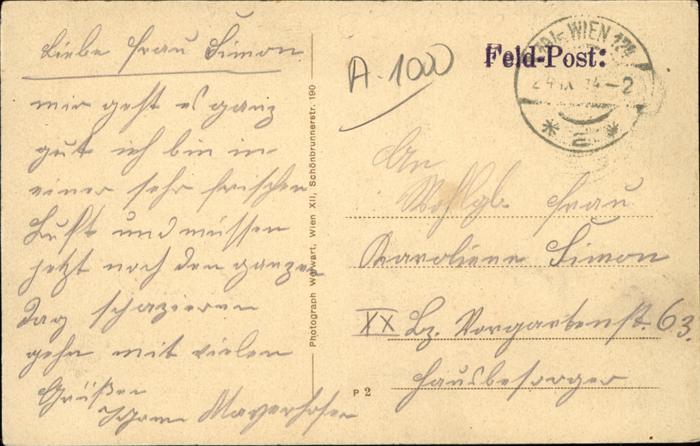 Liebe Frau Simon
mir geht es ganz
gut ich bin in
einer sehr frischen
Luft und müssen
jetzt noch den ganzen
Tag schpazieren
gehn mit vielen
Grüßen
Mayerhofer
Photograph Werwart, Wien XII, Schönbrunnerstr. 190
A.1000
Feld-Post:
WIEN
An
Wohlgb. Frau
Karoliene Simon
XX Bz. Vorgartenst. 63.
Hausbesorger
P 2